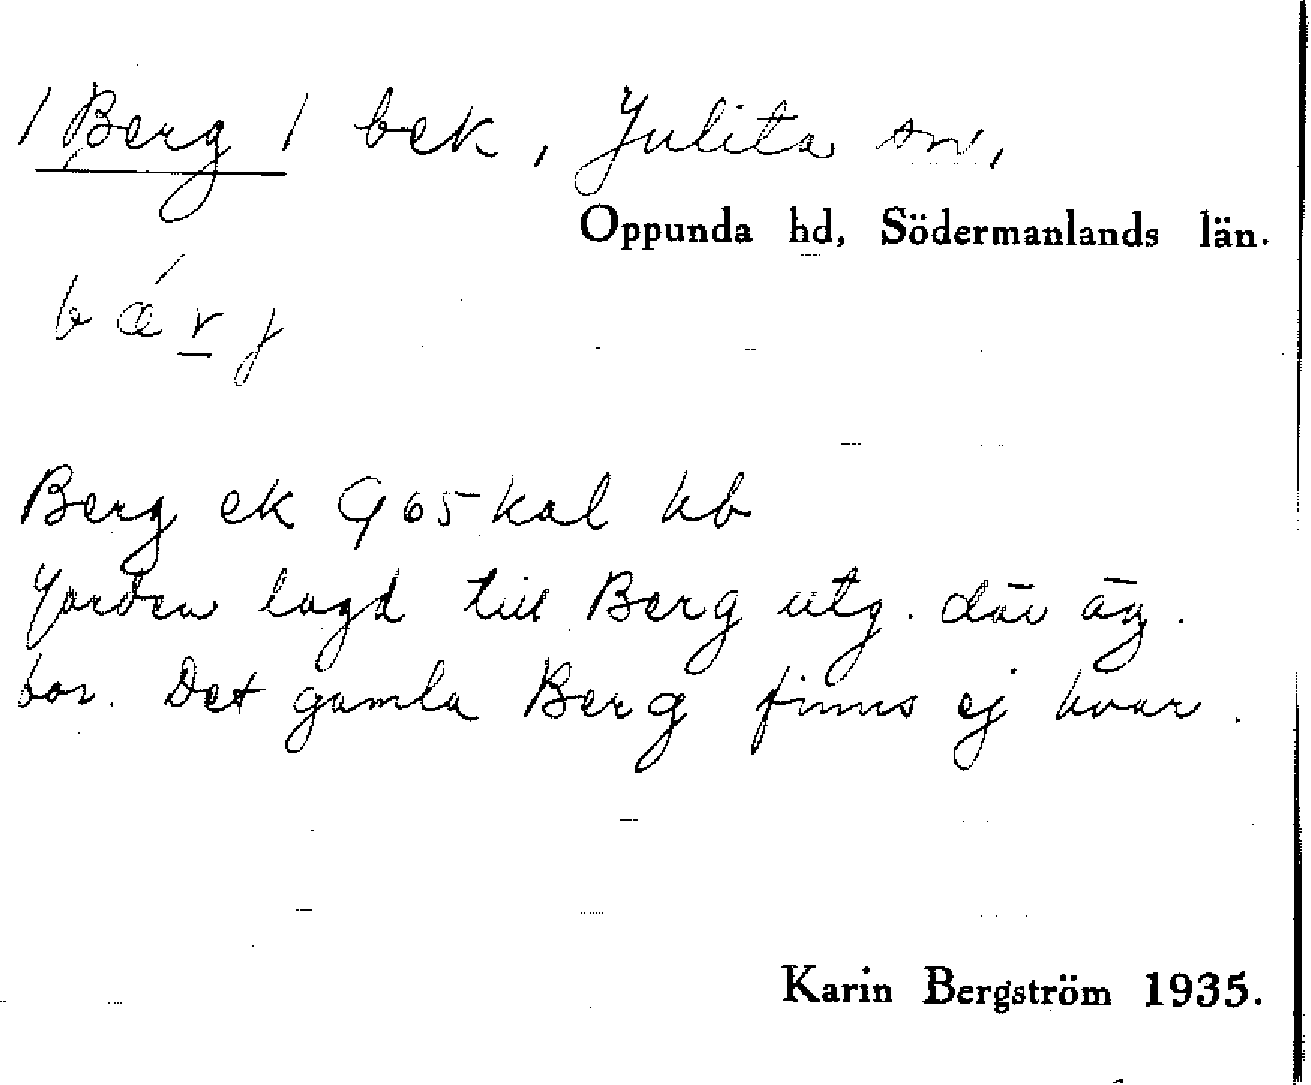 / Berg / bek, Julita sn,
Oppunda hd, Södermanlands län.
bǽrj
Berg ek 965 kal hb
Jorden lagd till Berg utg. där äg.
bor. Det gamla Berg finns ej kvar.
Karin Bergström 1935.